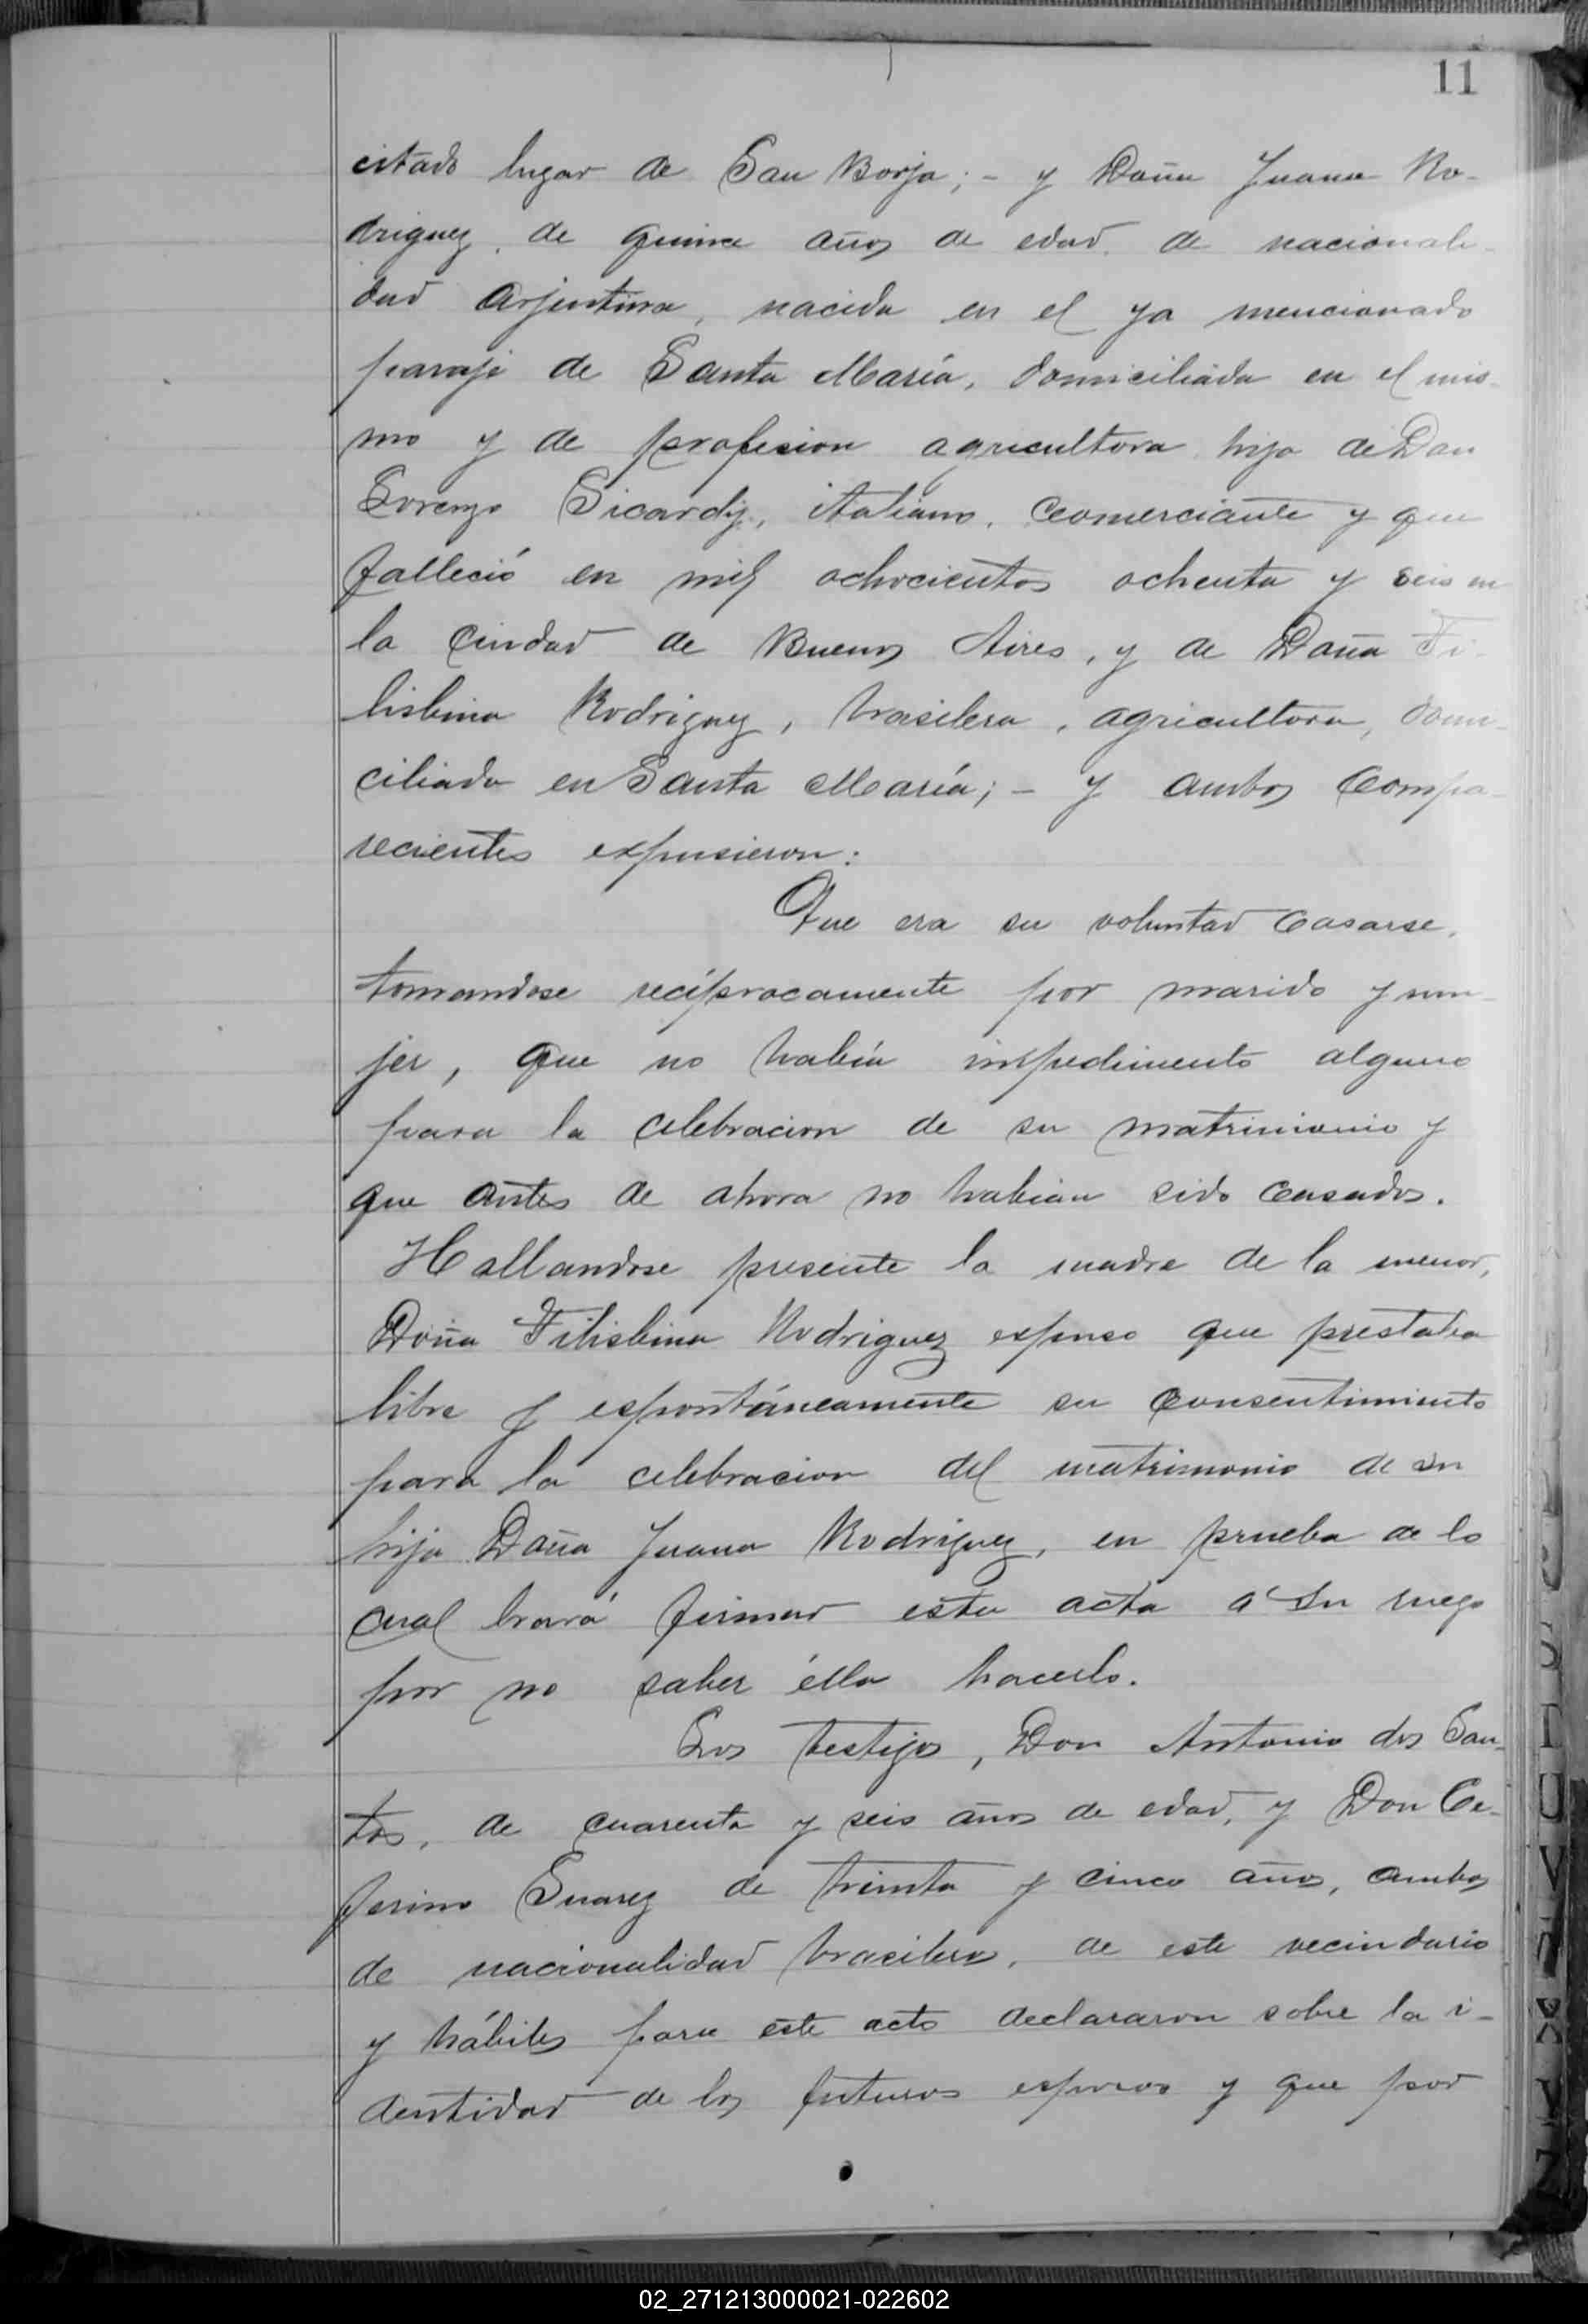 11
citado lugar de San Borja; - y Doña Juana Ro-
driguez, de quince años de edad, de nacionali-
dad arjentina, nacida en el ya mencionado
paraje de Santa María, domiciliada en el mis-
mo y de profesion agricultora hija de Don
Lorenzo Sicardy, italiano, comerciante y que
falleció en mil ochocientos ochenta y seis en
la ciudad de Buenos Aires, y de Doña Fi-
lisbina Rodriguez, brasilera, agricultora, domi-
ciliada en Santa María; - y ambos compa-
recientes expusieron:
Que era su voluntad casarse,
tomandose recíprocamente por marido y mu-
jer, que no había impedimento alguno
para la celebracion de su matrimonio y
que antes de ahora no habian sido casados.
Hallandose presente la madre de la menor,
Doña Filisbina Rodriguez espuso que prestaba
libre y espontáneamente su consentimiento
para la celebracion del matrimonio de su
hija Doña Juana Rodriguez, en prueba de lo
cual hará firmar esta acta á su ruego
por no saber élla hacerlo.
Los testigos, Don Antonio dos San-
tos, de cuarenta y seis años de edad, y Don Ce-
ferino Suarez de treinta y cinco años, ambos
de nacionalidad brasilera, de este vecindario
y hábiles para este acto declararon sobre la i-
dentidad de los futuros esposos y que por
02_271213000021-022602